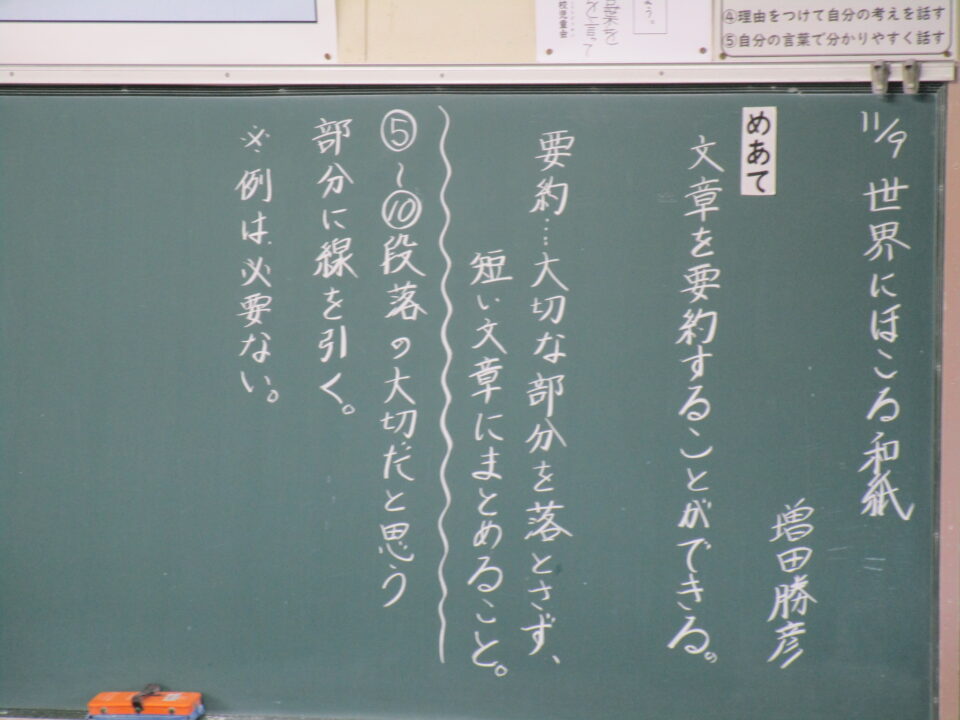 ④理由をつけて自分の考えを話す
⑤自分の言葉で分かりやすく話す
校児童会
11/9 世界にほこる和紙
増田勝彦
めあて
文章を要約することができる。
要約…大切な部分を落とさず、
短い文章にまとめること。
⑤〜⑩段落の大切だと思う
部分に線を引く。
※例は必要ない。